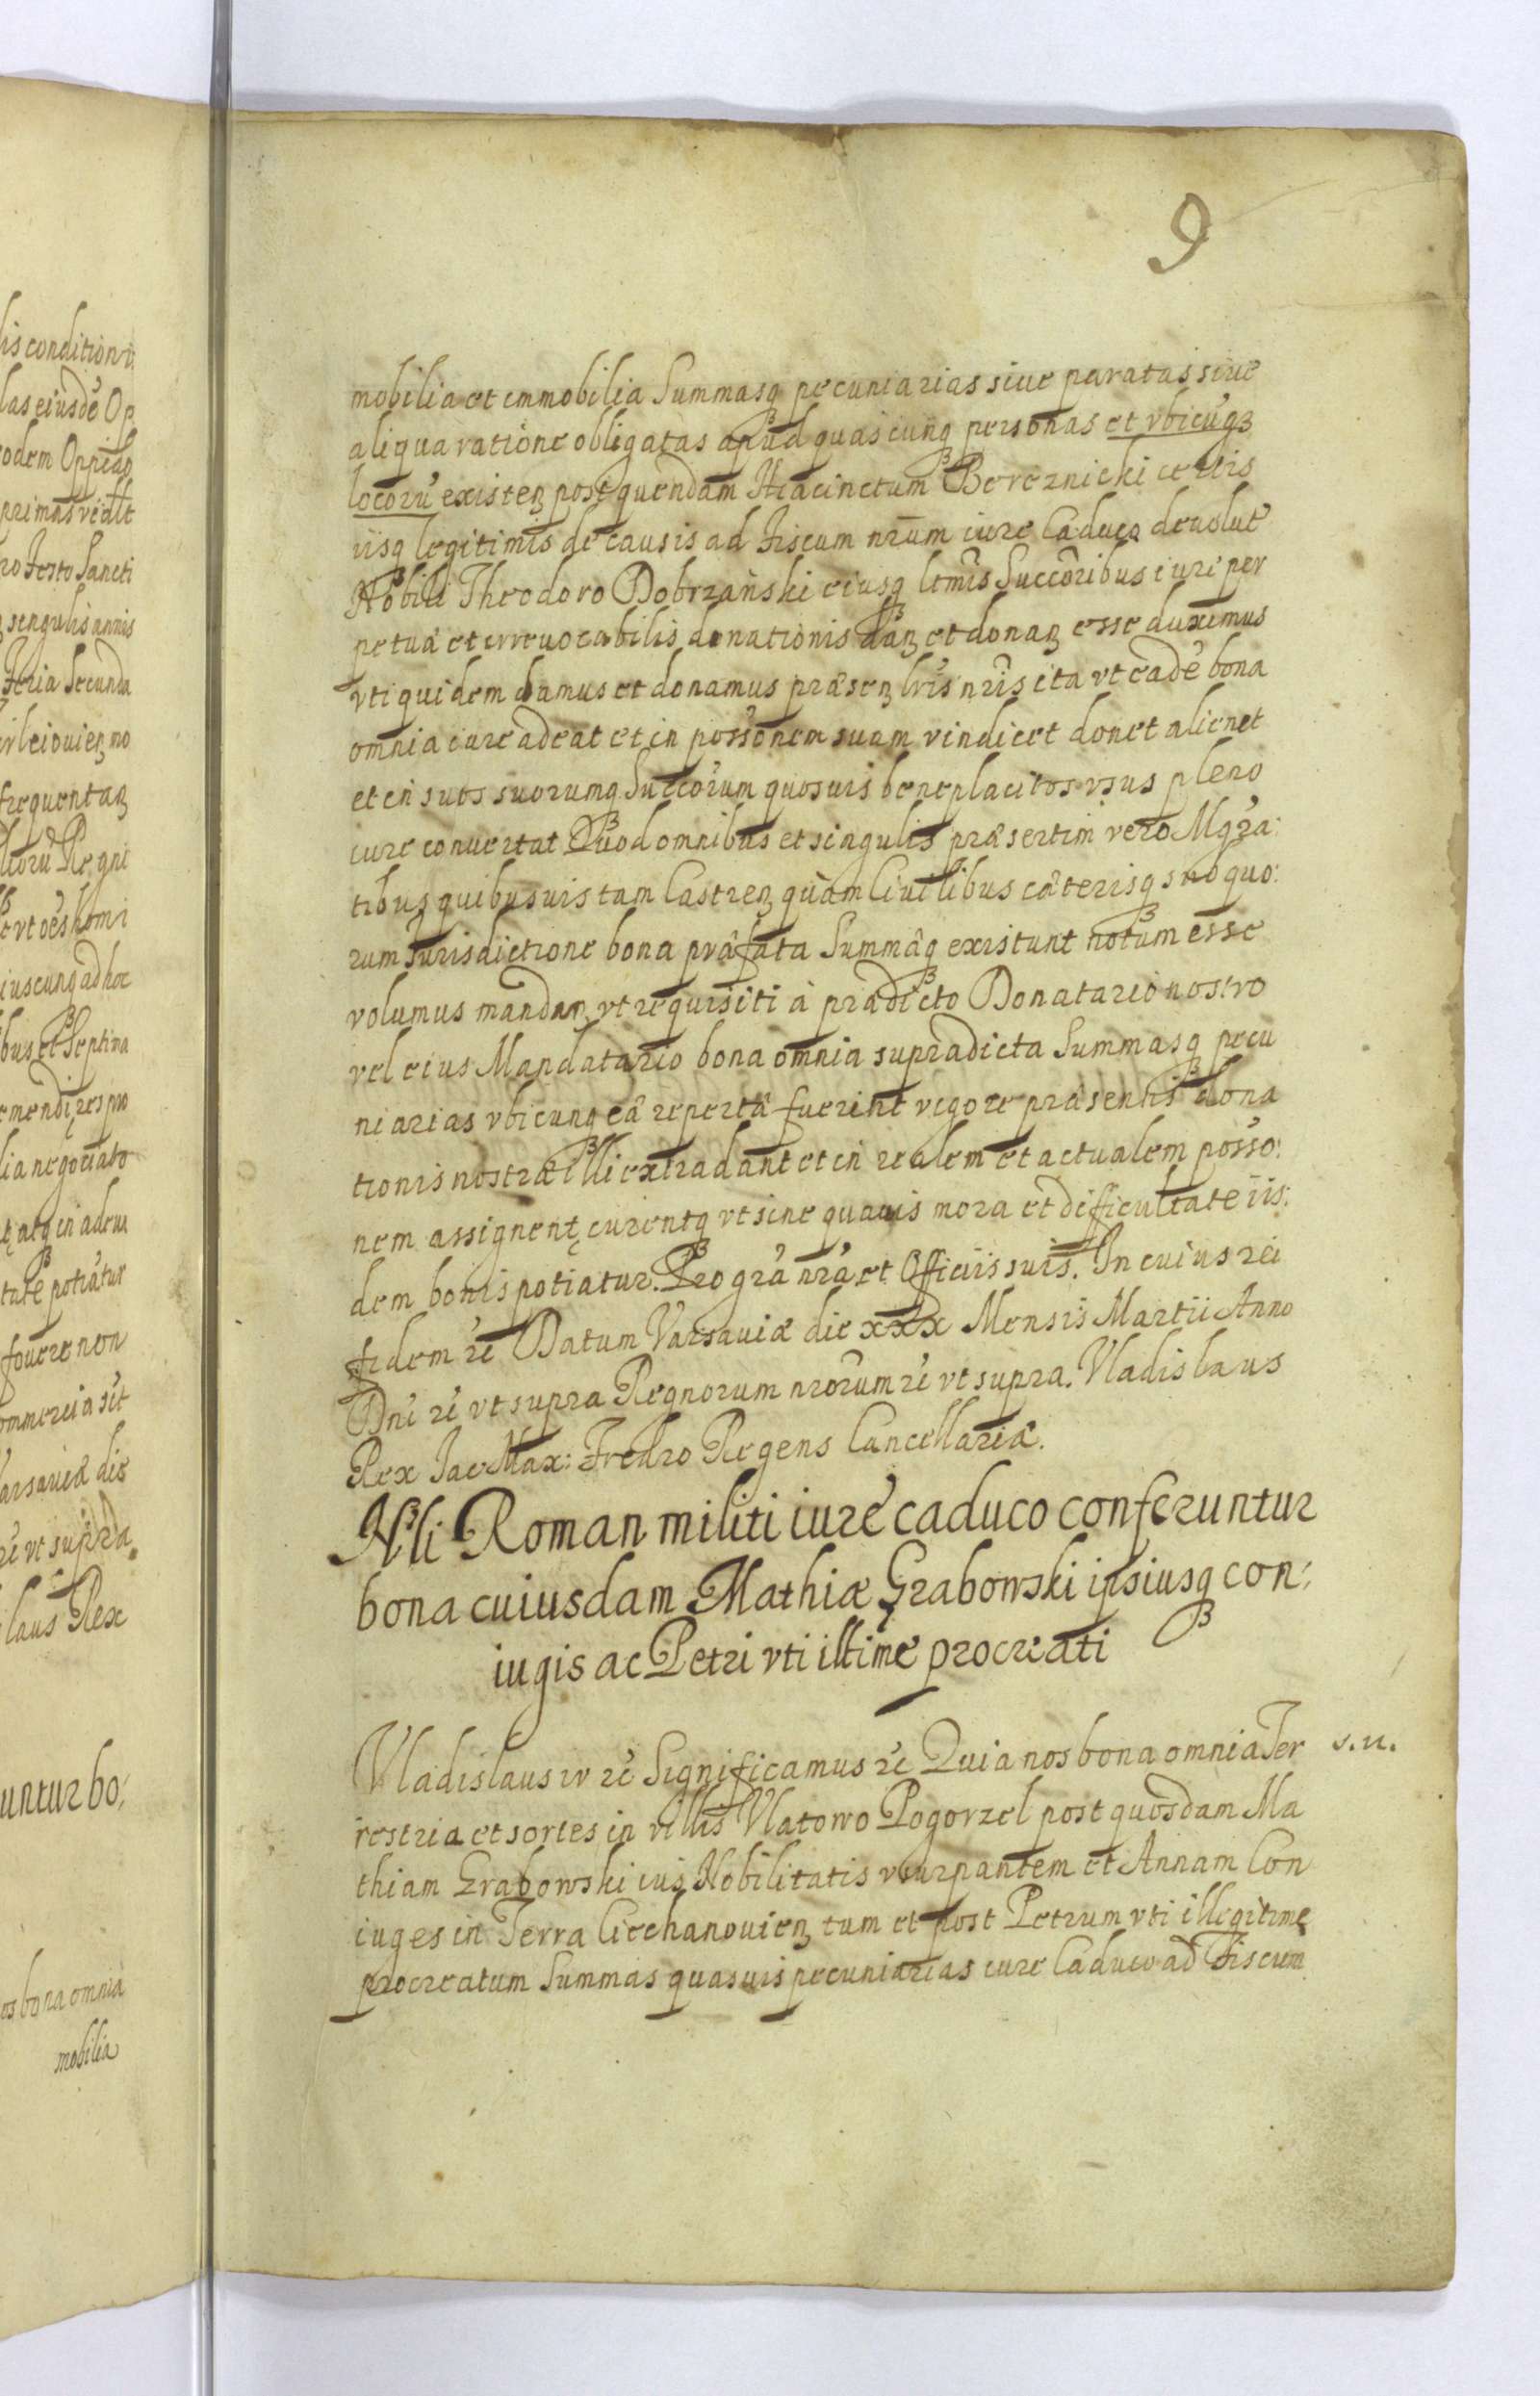 9
mobilia et immobilia Summasq₃ pecuniarias siue paratas siue
aliqua ratione obligatas apud quascunq₃ personas et vbicu̓q₃
locoru̓ existen₃ post quendam Hiacinctum Bereznicki certis
iisq₃ legitimis de causis ad Fiscum nr̄um iure Caduco deuolut̓
Nobili Theodoro Dobrzański eiusq₃ ltmis Succoribus iure per
petuâ et irreuocabilis donationis dan₃ et donan₃ esse duximus
vti quidem damus et donamus præsen₃ lris nris ita vt eade̓ bona
omnia iure adeat et in possonem suam vindicet donet alienet
et in suos suorumq₃ Succorum quosuis beneplacitos vsus pleno
iure conuertat Quod omnibus et singulis præsertim vero Mgra:
tibus quibusuis tam Castren₃ quàm Ciuilibus cæterisq₃ sub quo:
rum Jurisdictione bona præfata Summæq₃ existunt notum esse
volumus mandan₃ vt requisiti à prædicto Donatario nostro
vel eius Mandatario bona omnia supradicta Summasq₃ pecu
niarias vbicunq₃ eâ repertâ fuerint vigore præsentis dona
tionis nostræ illi extradant et in realem et actualem posso:
nem assignent, curentq₃ vt sine quauis mora et difficultate iis:
dem bonis potiatur. Pro gra̓ nra̓ et Officiis suis. In cuius rei
fidem re̓ Datum Varsauiæ die xxx Mensis Martii Anno
Dni re̓ vt supra Regnorum nrorum re̓ vt supra. Vladislaus
Rex Jac Max: Fredro Regens Cancellariæ.
Nli Roman militi iure caduco conferuntur
bona cuiusdam Mathiæ Grabowski ipsiusq₃ con:
iugis ac Petri vti illtime procreati
Vladislaus iv re̓ Significamus re̓ Quia nos bona omnia Ter
s.n.
restria et sortes in villis Vlatowo Pogorzel post quosdam Ma
thiam Grabowski ius Nobilitatis vsurpantem et Annam Con
iuges in Terra Ciechanouien₃ tum et post Petrum vti illegitime
procreatum Summas quasuis pecuniarias iure Caduco ad Fiscum
lis condition
las eiusde̓ Op
odem Oppid
ro Festo Sancti
singulis annis
Feria Secunda
frequentan₃
Regni
iuscunq₃ ad hoc
emendi, res pro
lia negociato
potiatur
fouere non
ommercia sit
arsauiæ die
re̓ vt supra.
laus Rex
untur bo:
os bona omnia
mobilia